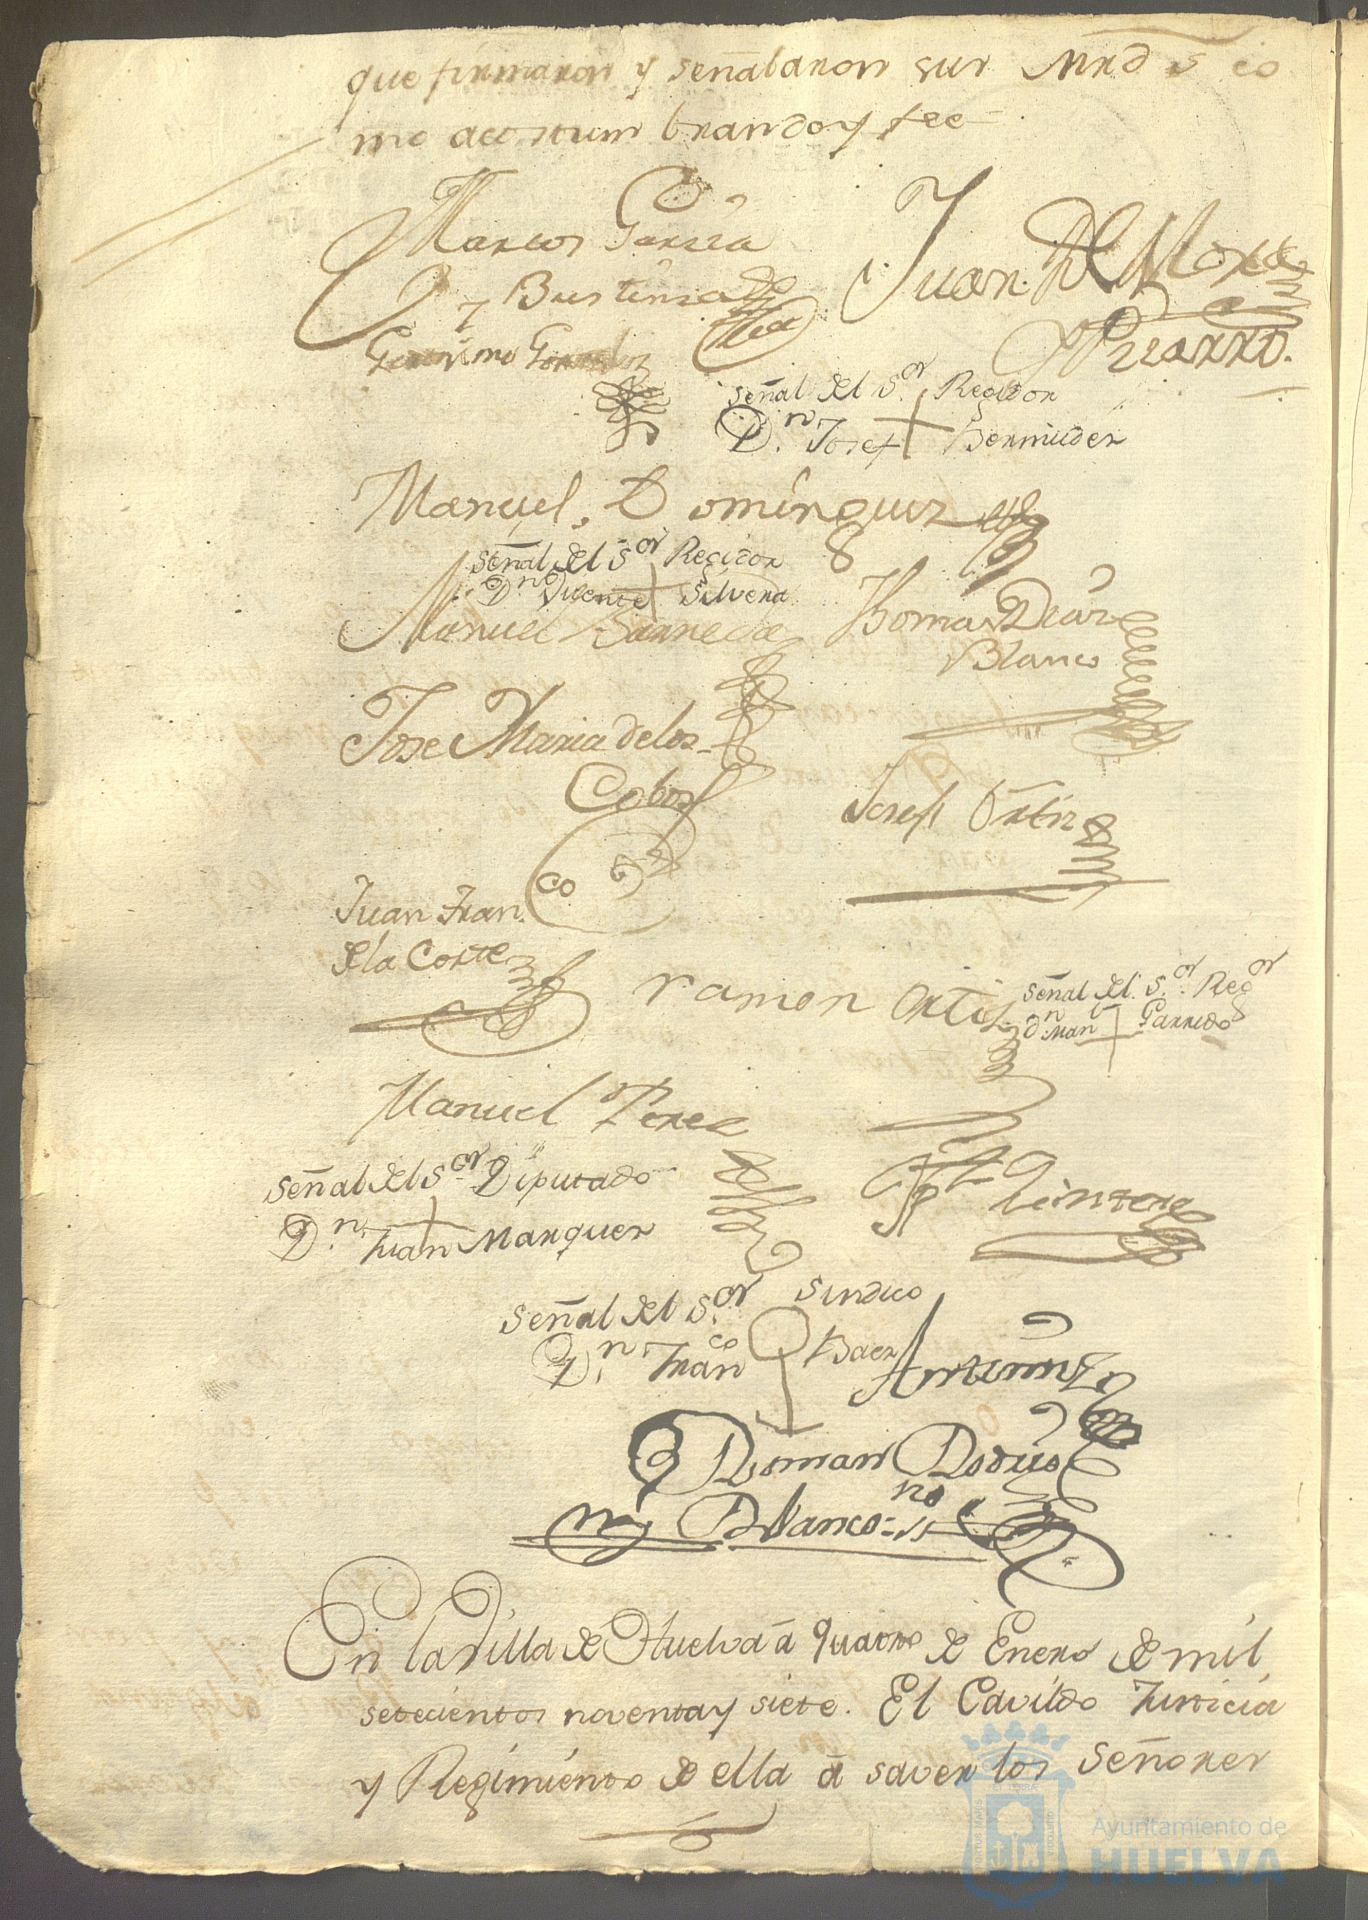 que firmaron y señalaron sus Mrds co
mo acostumbran doy fee =
Marcos Garcia
y Bustinsa
Juan De Mora
y Pizarro.
Geronimo Gonzalez
Señal del S.or Regidor
D.n Josef + Bermudez
Manuel Dominguez
Señal del S.or Regidor
D.n Vicente + Silvera
Manuel Barreda
Thomas Diaz
Blanco
Jose Maria de los
Cobos
Josef Ortiz
Juan Fran.co
de la Corte
ramon Ortis
Señal del S.or Reg.or
d.n Man.l + Garrido
Manuel Perez
Señal del S.or Diputado
D.n Juan + Marquez
Quintero
Señal del S.or Sindico
D.n Fran.co Baez
Ante mi
Roman Rodrig
Blanco = no
En la Villa de Huelva â quatro de Enero de mil
setecientos noventa y siete. El Cavildo Justicia
y Regimiento de ella â saver los Señores
Ayuntamiento de
HUELVA